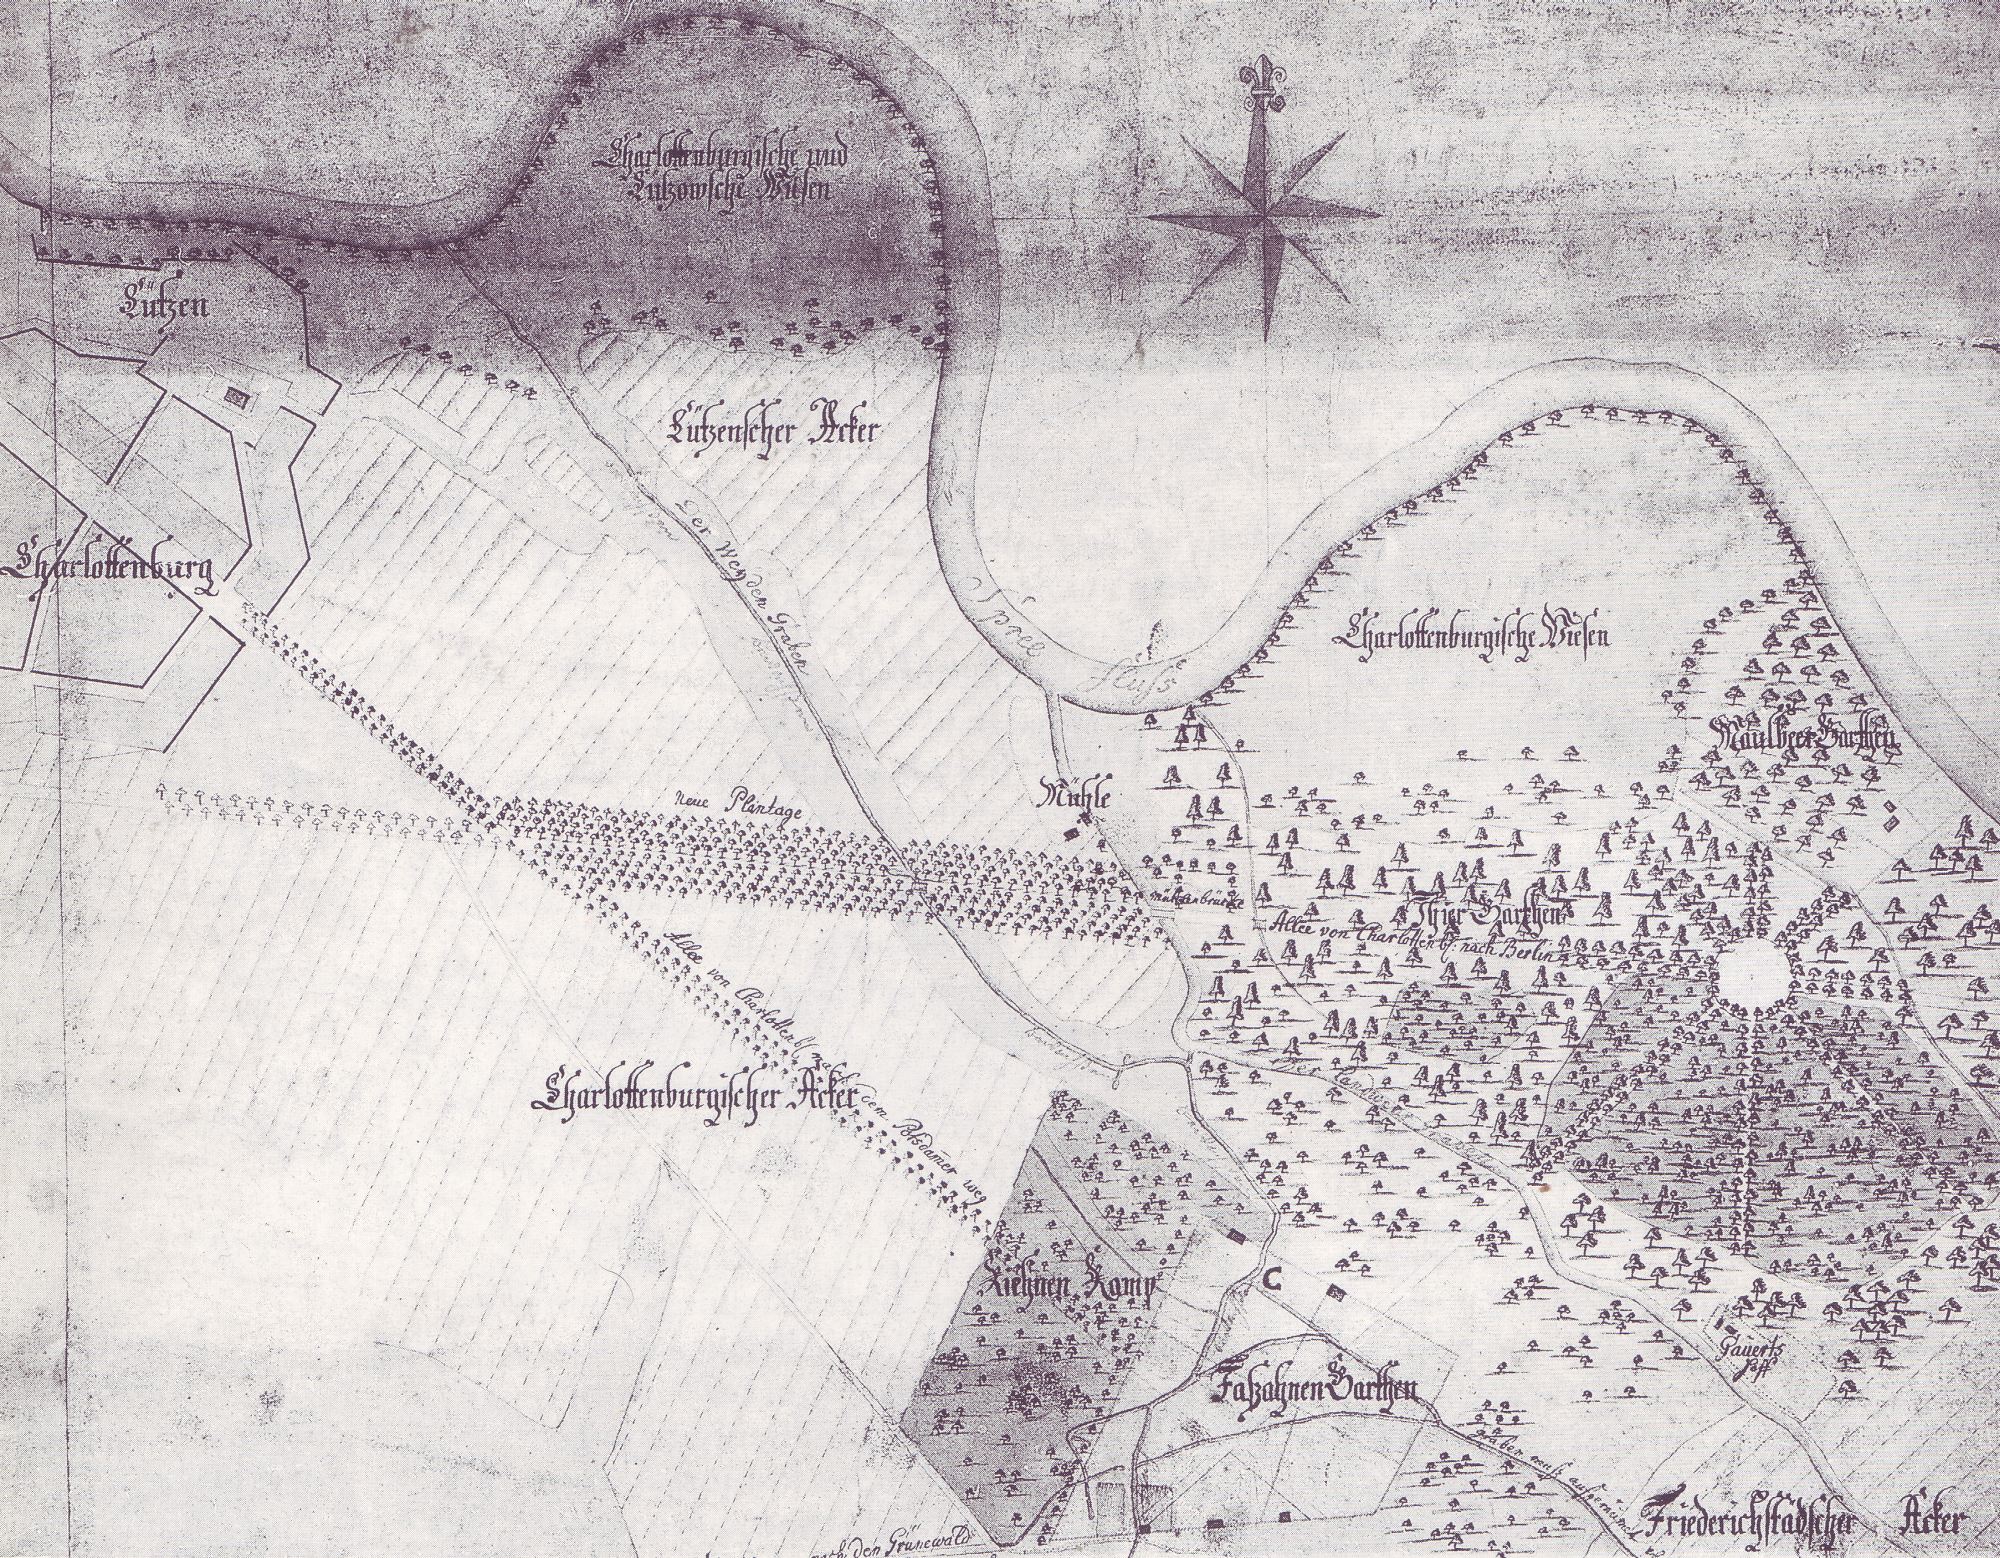 Charlottenburgische und
Lützowsche Wiesen
Lützen
Lützenscher Acker
Der Weyden Graben
Charlottenburg
Spree
fluss
Charlottenburgische Wiesen
Maulbeer Garthen
Neue Plantage
Mühle
Thier Garthen
Allee von Charlottenb: nach Berlin
Allee von Charlottenb: nach dem Potsdamer weg
Charlottenburgischer Acker
Der Landwehr graben
Kiehnen Kamp
C
Gauerts
Faßahnen Garthen
graben
Friederichstädscher Acker
nach den Grünewald